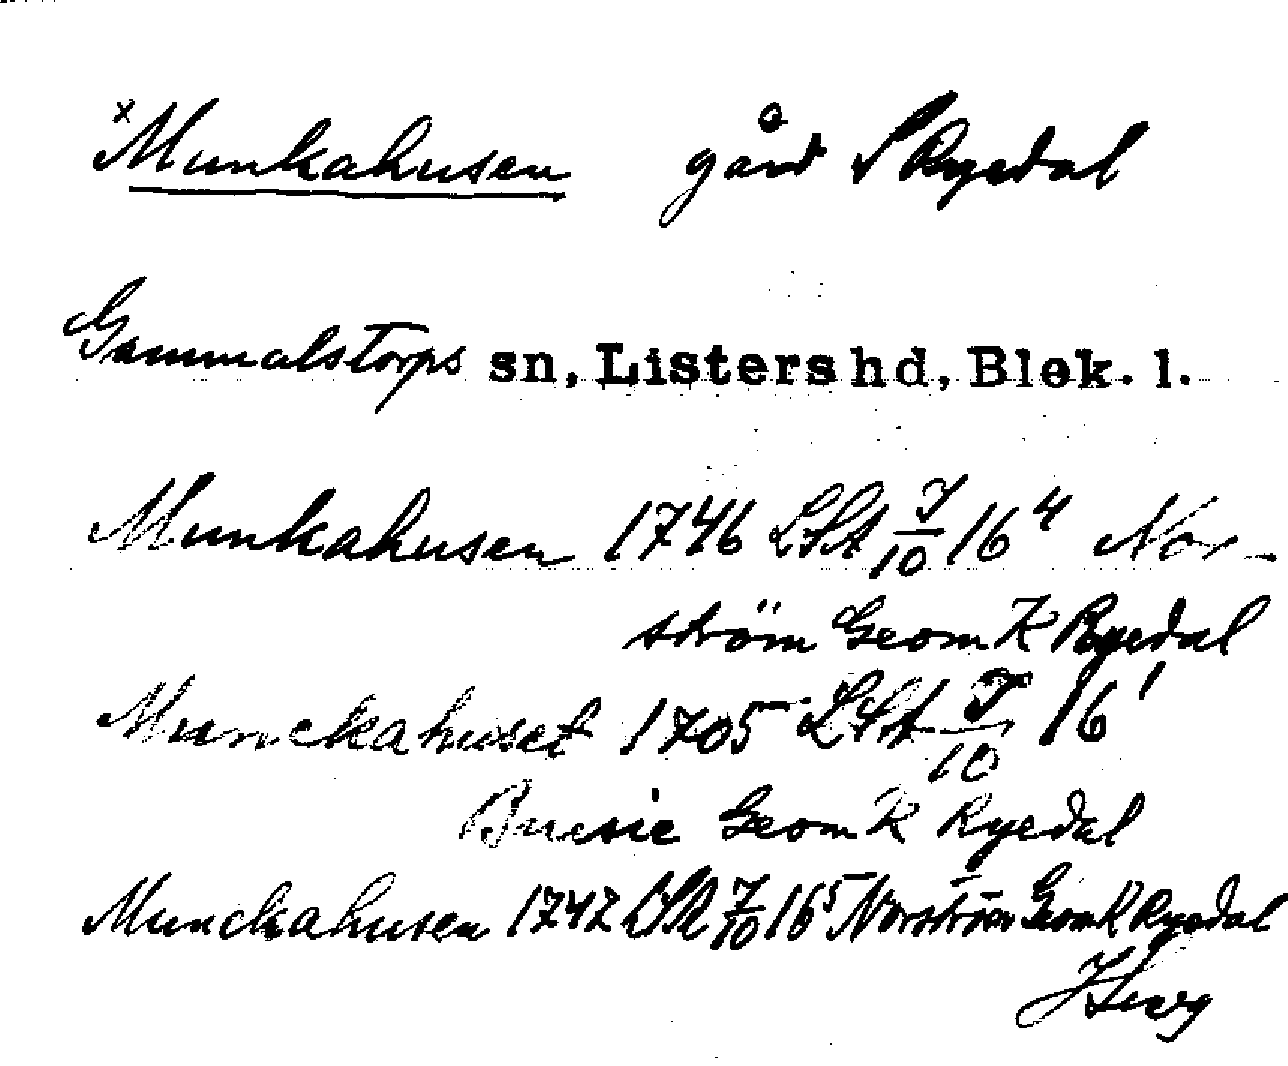 x Munkahusen gård S Ryedal
Gammalstorps sn, Listers hd, Blek. l.
Munkahusen 1746 LSA J/10 16⁴ Nor-
ström Geom K Ryedal
Munckahuset 1705 LSA J/10 16¹
Busie Geom K Ryedal
Munckahusen 1742 LSA J/10 16⁵ Norström Geom K Ryedal